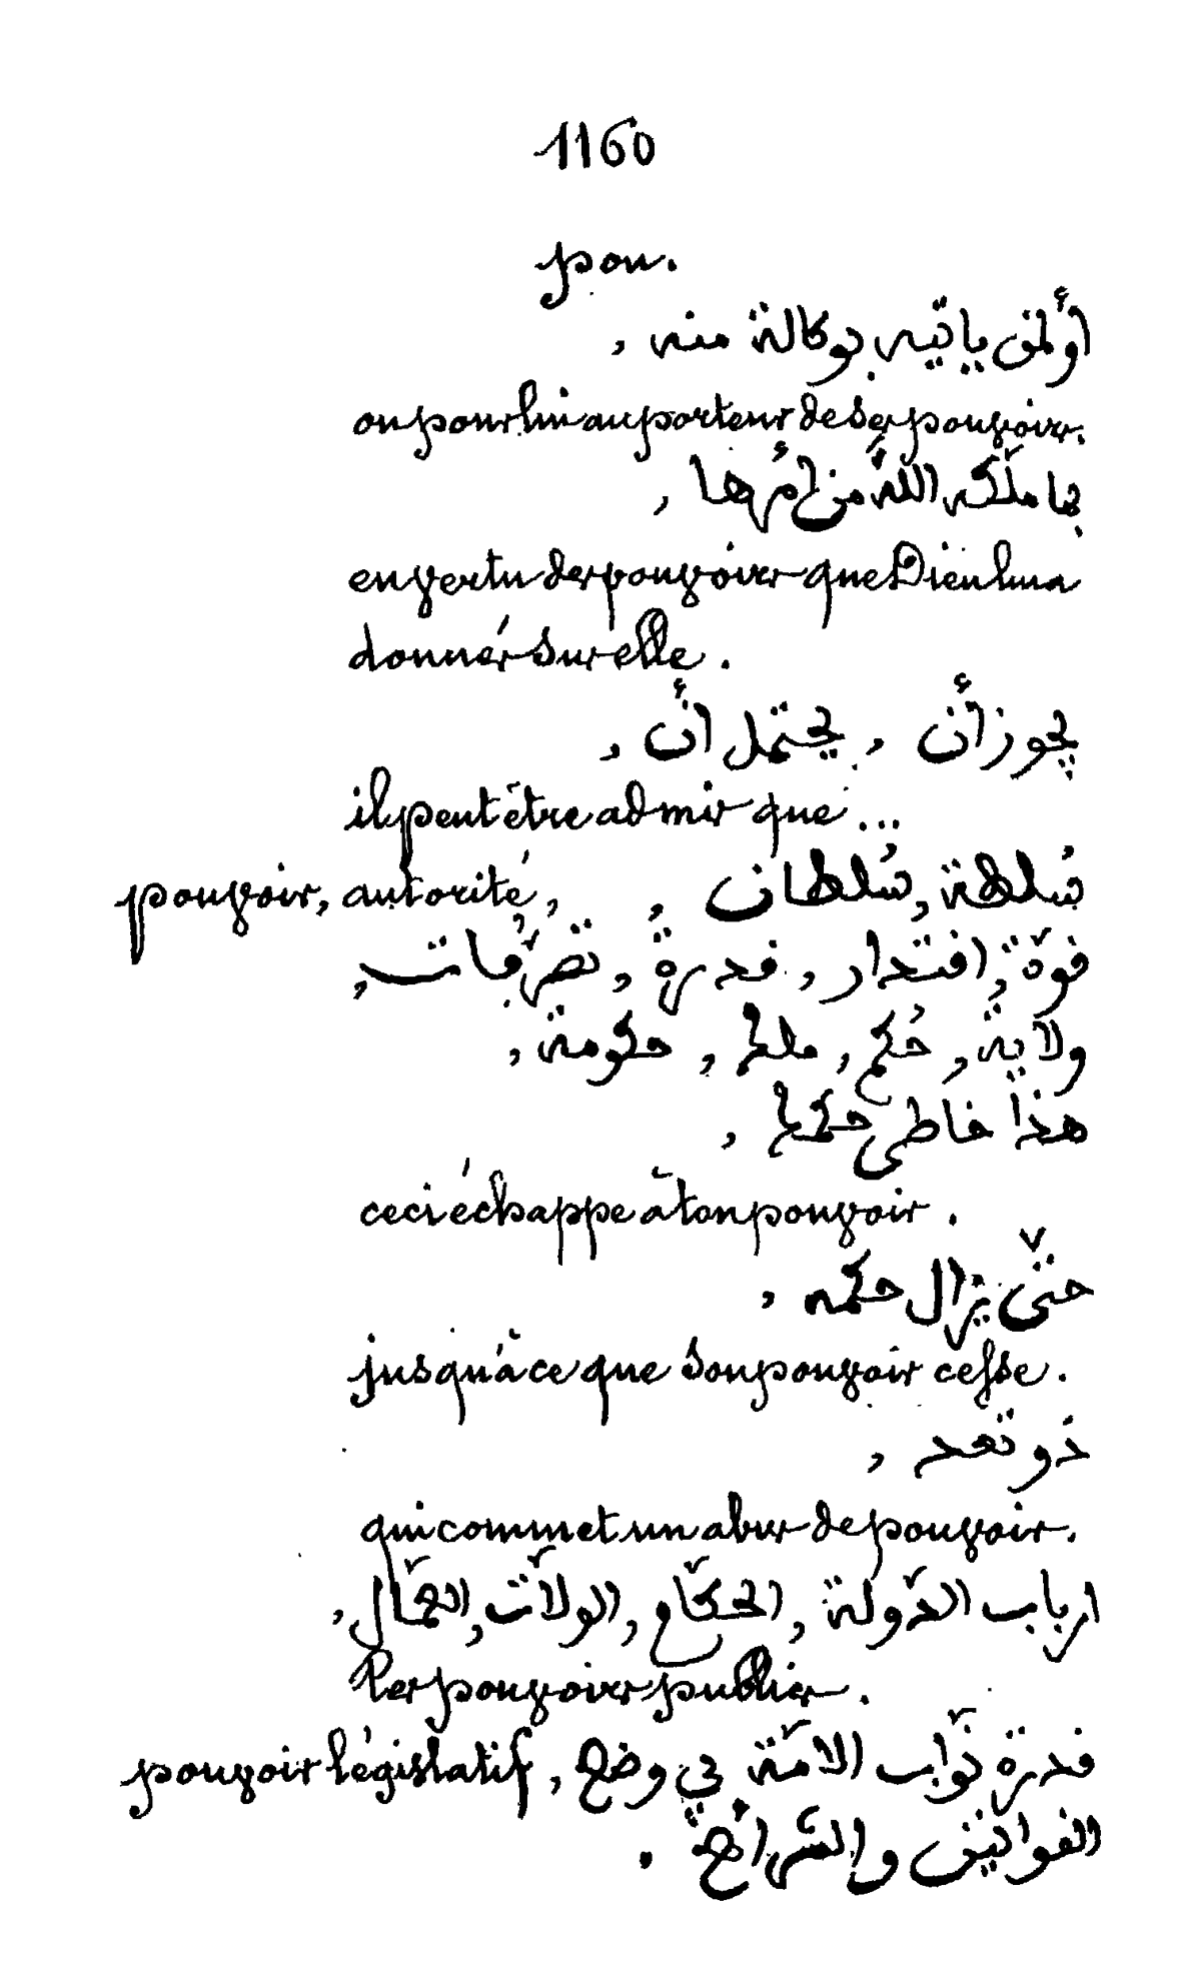 1160
pou.
أو لمن ياتيه بوكالة منه ,
ou pour lui au porteur de ses pouvoirs.
بما ملّكه اللّٰه من أمرها ,
en vertu des pouvoirs que Dieu lui a
donnés sur elle .
يجوز أن , يحتمل أن ,
il peut être admis que ...
pouvoir, autorité, سُلطة , سُلطان ,
قوّة , اقتدار , قدرة , تصرّفات ,
ولاية , حُكم , ملك , حكومة ,
هذا خاطى حكمك ,
ceci échappe à ton pouvoir .
حتّى يزال حكمه ,
jusqu'à ce que son pouvoir cesse .
ذو تعد ,
qui commet un abus de pouvoir .
ارباب الدّولة , الحكّام , الولّات , العمّال ,
les pouvoirs publics .
pouvoir législatif , قدرة نوّاب الامّة في وضع
القوانين والشرائع .